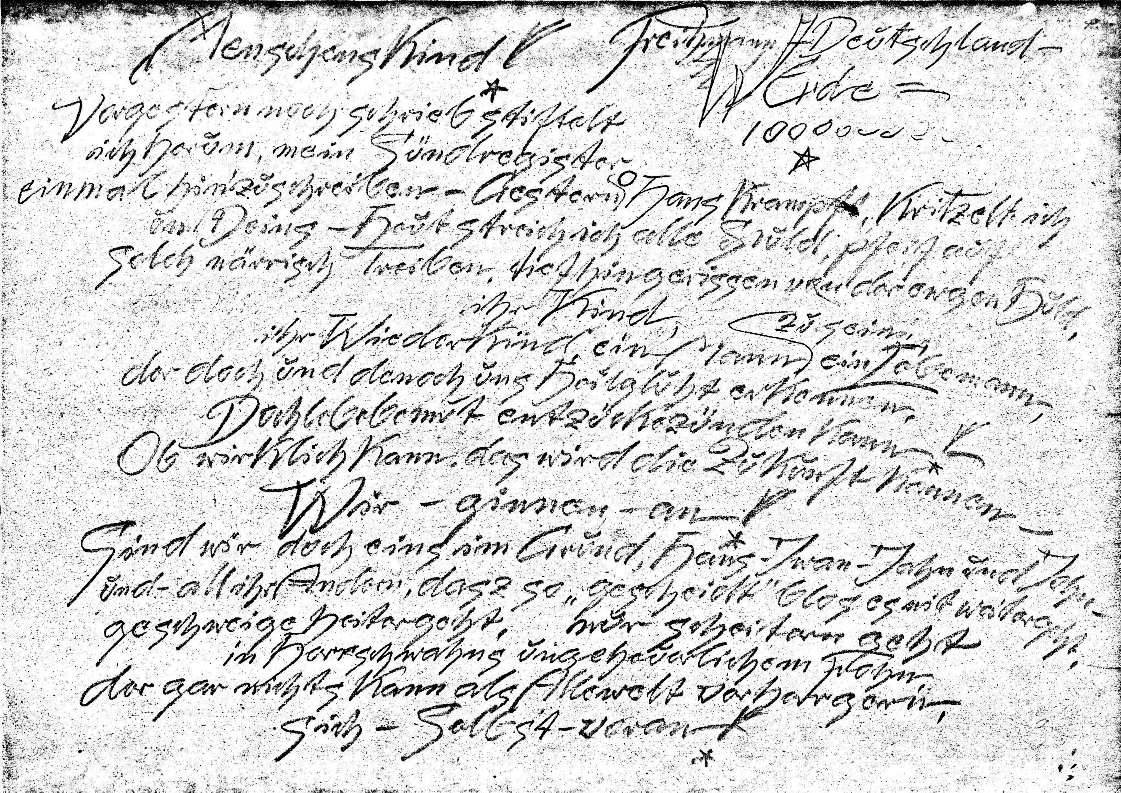 Menschenskind!
Deutschland –
Erde =
10000000
Vorgestern noch schrieb stiftelt
ich herum, mein Sündregister
einmal hinzuschreiben – Gestern, Hans Krampf, Kritzelt ich
um Deins – Heut streich ich alle Schuld, pfeif auf
solch närrisch Treiben, tief hingerissen von der ewgen Huld,
ihr Kind, zu sein,
ihr Wiederkind, ein Mann, ein
der doch und dennoch uns Heilglüht erkennen,
entzückezünden Kann!
Ob wirklich Kann, das wird die Zukunft Kennen –
Wir – ginnen – an!
Sind wir doch eins im Grund, Hans – Iwan – Jahn und John –
und – all ihr Andern, dasz so „gescheidt" blos es nit weitergeht,
geschweige heitergeht, nur scheitern geht
in Herrschwahns ungeheuerlichem Frohn
der gar nichts Kann als Allewelt verhargern,
Sich – Selbst – voran!